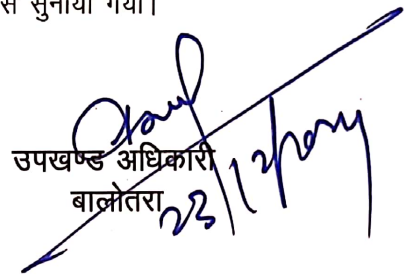 से सुनाया गया।
उपखण्ड अधिकारी
बालोतरा
23/12/